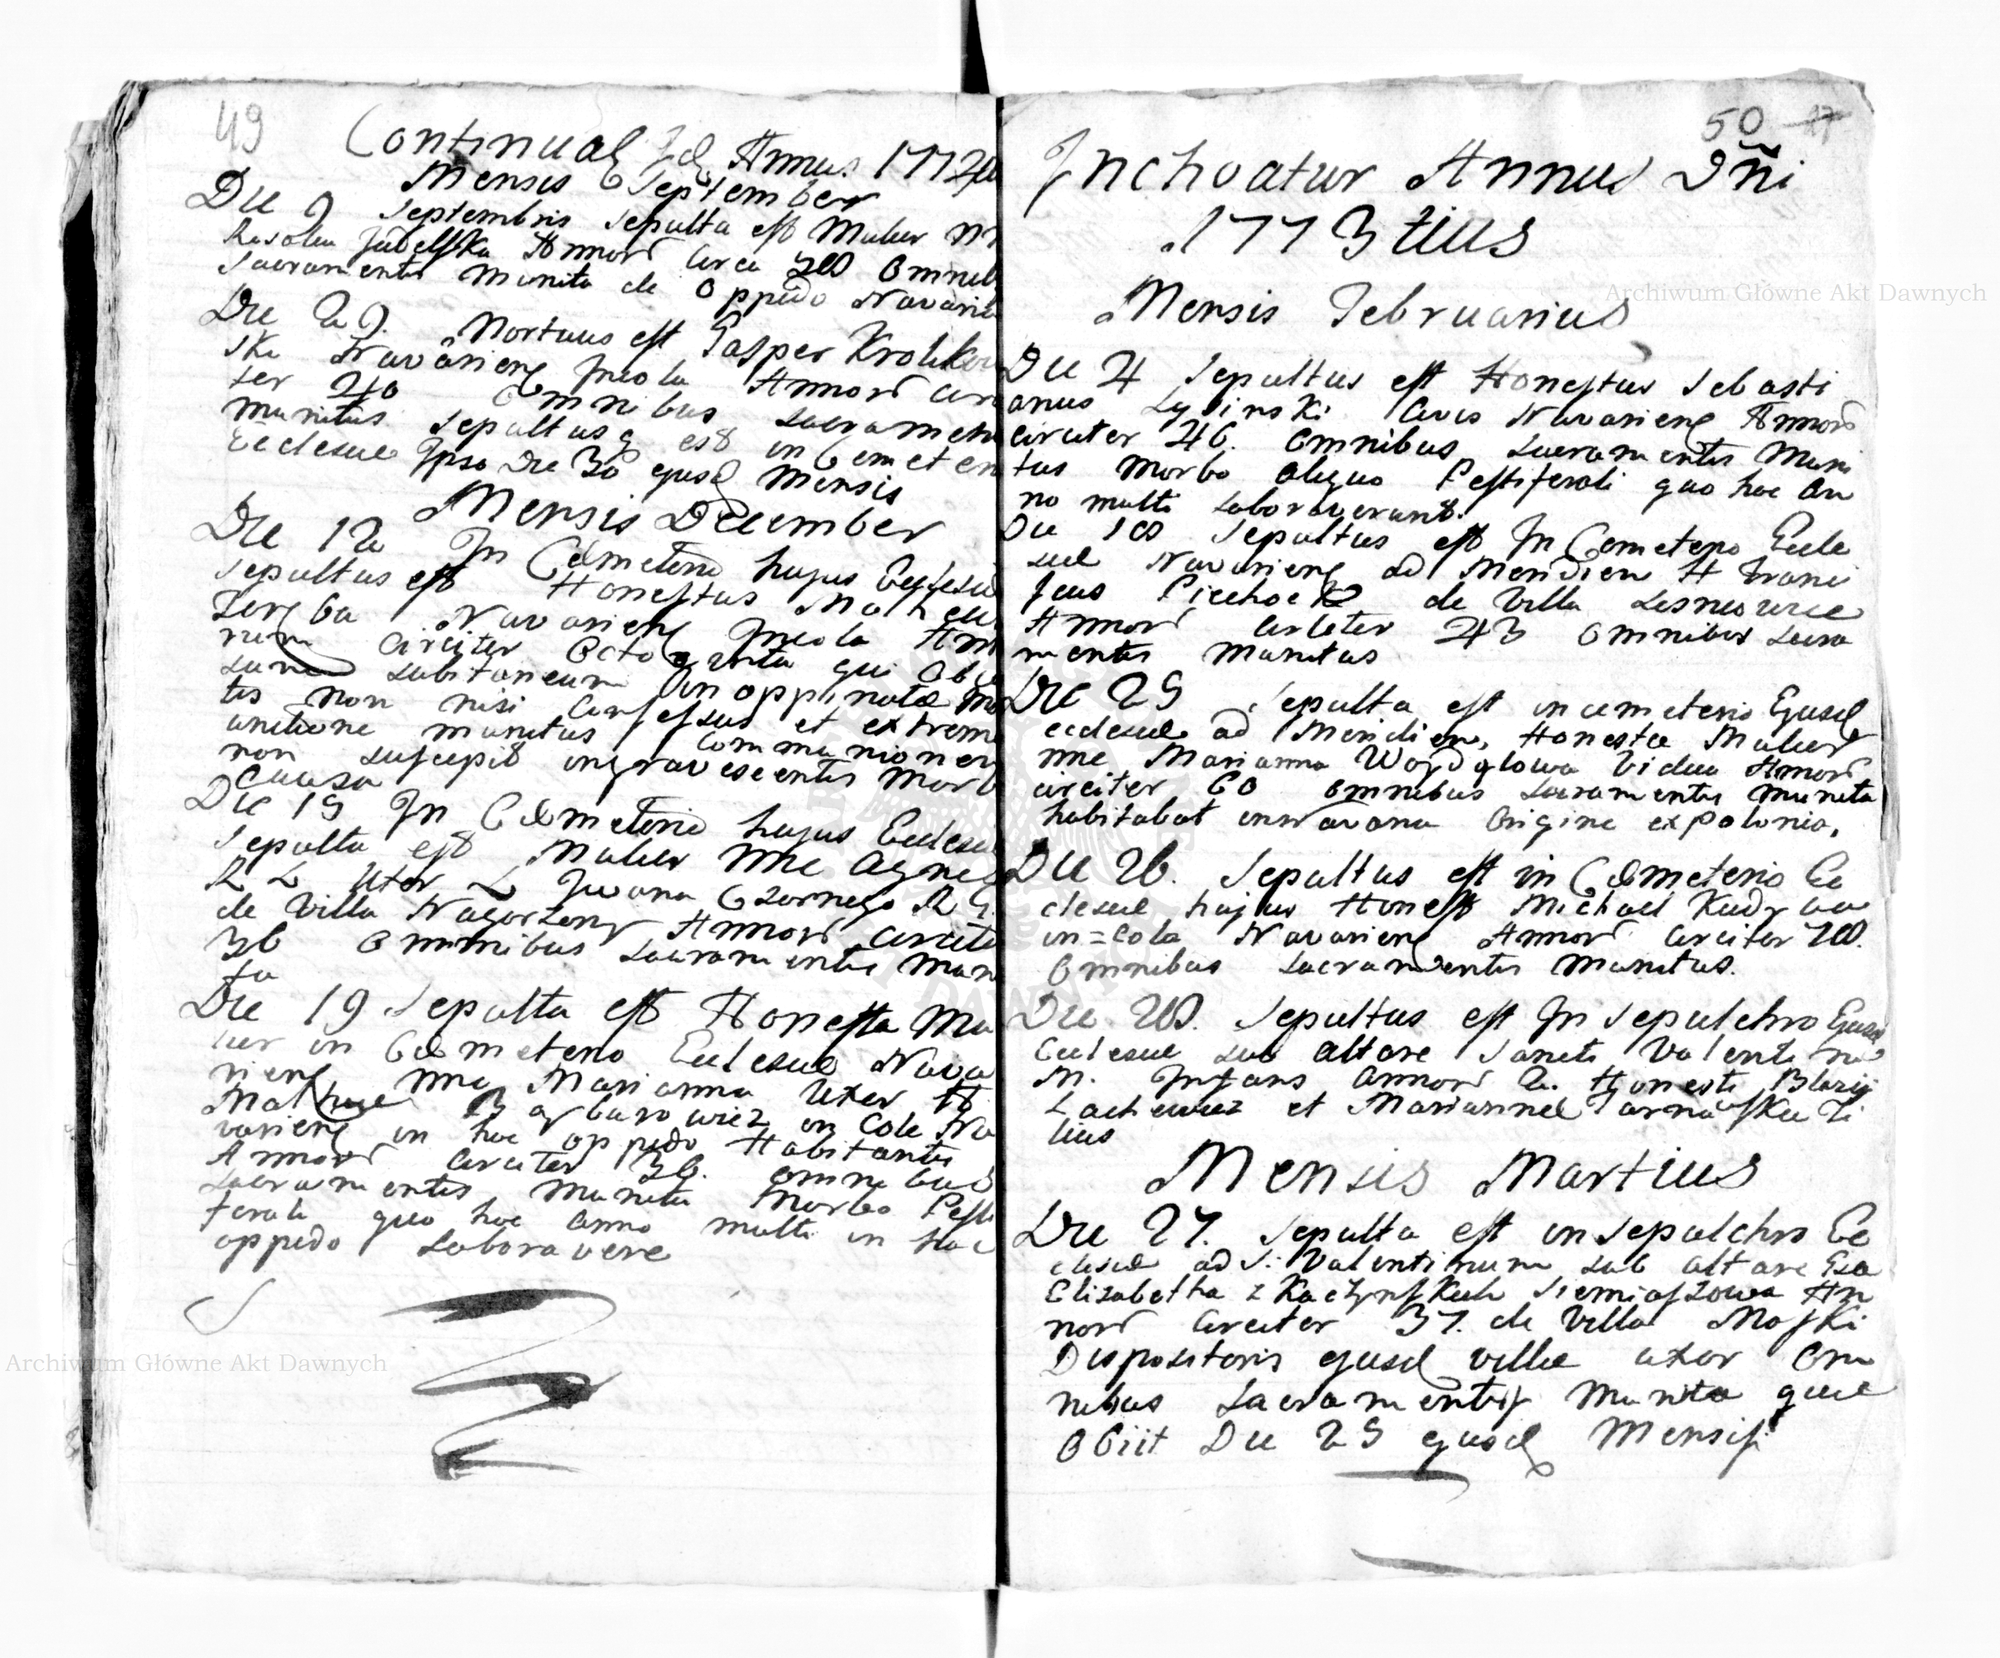 49
Continuat Annus 1772dus
Mensis September
Die 9 Septembris sepulta est Mulier
Annorum circa omnib
Sacramentis munita de Oppido Navarien
Die 29. Mortuus est Gasper Krolikow
ski Navarienĝ Incola Annorum circi
ter 40 Omnibus Sacramen
munitus sepultusq est in Cemeteri
Ecclesiae Ipso Die 30 ejusd Mensis
Mensis December
Die 12 In Cemeterio hujus Ecclesiae
sepultus est Honestus Matheus
Zaremba Navarieng Incola Anno
rum circiter Octoginta qui ob
subitaneum inoppinatae
tis non nisi confessus et extrema
unctione munitus Communionem
non suscepit ingravescentis morb
causa
Die 15 In Cemeterio hujus Ecclesiae
sepulta est Mulier nne Agnes
R L Uxor L Iwana Czornego R G.
de Villa Nagorzany Annor circite
36 Omnibus Sacramentis Muni
ta
Die 19 Sepulta est Honesta Mu
lier in Cemeterio Ecclesiae Nava
rieng nne Marianna Uxor H
Mathiae Barburowicz in Cole Na
varieng in hoc oppido Habitantis
Annor circiter 36. omnibus
Sacramentis Munita Morbo Pesti
ferali quo hoc anno multi in hoc
oppido laboravere
50
Inchoatur Annus Dñi
1773tius
Mensis Februarius
Die 4 Sepultus est Honestus Sebasti
anus Lysinski Civis Navarieng Annor
circiter 46. omnibus Sacramentis Muni
tus Morbo aliquo Pestiferali quo hoc an
no multi laboraverunt.
Die 18 Sepultus est In Cemeterio Eccle
siae Navarieng ad Meridiem H Franci
scus Piechock de Villa Lesniowice
Annor circiter 43 Omnibus Sacra
mentis Munitus
Die 25 Sepulta est in cemeterio Ejusd
ecclesiae ad Meridiem, Honesta Mulier
nne Marianna Wozdglowa Vidua Annor
circiter 60 omnibus Sacramentis Munita
habitabat in Navaria Origine ex Polonia,
Die 26. Sepultus est in Cemeterio Ec
clesiae hujus Honest Michael
in=Cola Navarieng Annor circiter 70.
Omnibus Sacramentis Munitus.
Die 28. Sepultus est In Sepulchro Ejusd
Ecclesiae sub altare Sancti Valentini
M. Infans annor 2. Honesti Blasij
Lachewicz et Mariannae Tarnawska Fi
lius
Mensis Martius
Die 27. Sepulta est in Sepulchro Ec
clesiae ad S. Valentinum sub altare Gsa
Elisabetha z Kaczynskich Siemiaszowa An
nor circiter 37. de Villa Moski
Dispositoris ejusd villae uxor Om
nibus Sacramentis Munita quae
Obiit Die 25 ejusd Mensis
Archiwum Główne Akt Dawnych
Archiwum Główne Akt Dawnych